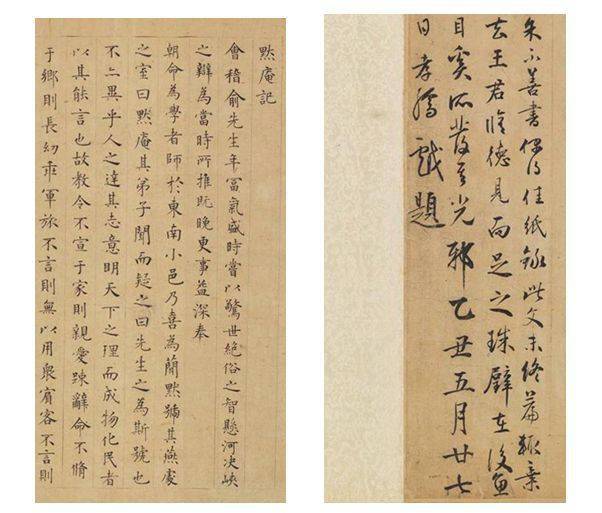 黙庵記
會稽俞先生年冨氣盛時嘗以驚世絶俗之智懸河决峽
之辯為當時所推既晚更事益深奉
朝命為學者師於東南小邑乃喜為簡黙號其燕處
之室曰黙庵其弟子聞而疑之曰先生之為斯號也
不亦異乎人之達其志意明天下之理而成物化民者
以其能言也故教令不宣于家則親愛踈辭命不脩
于鄉則長幼乖軍旅不言則無以用衆賓客不言則
余不善書偶得佳紙錄此文未終篇輒棄
去王君脩德見而足之珠璧在後魚
目奚所發其光邪乙丑五月廿七
日孝孺戲題